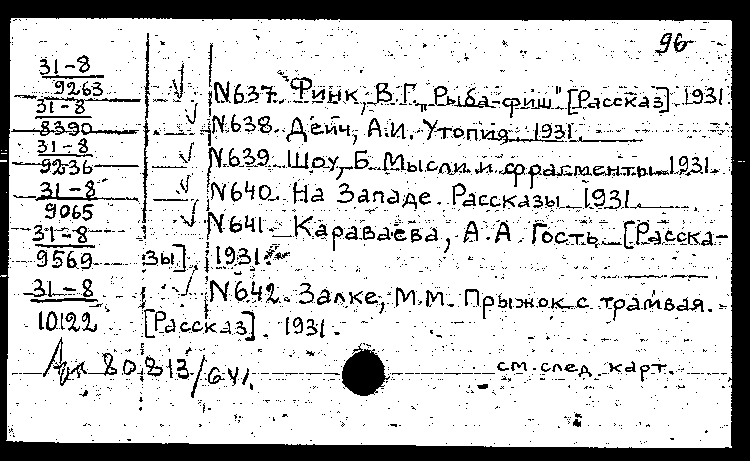 96
31-8
9263 N637. Финк, В.Г. „Рыба-фиш" [Рассказ] 1931
31-8
8390 N638. Дейч, А.И. Утопия 1931.
31-8
9236 N639. Шоу, Б. Мысли и фрагменты 1931.
31-8
9065 N640. На Западе. Рассказы 1931.
31-8 N641. Караваева, А.А. Гость [Расска-
9569 зы]. 1931.
31-8 N642. Залке, М.М. Прыжок с трамвая.
10122 [Рассказ]. 1931.
80.813/641.
см. след. карт.